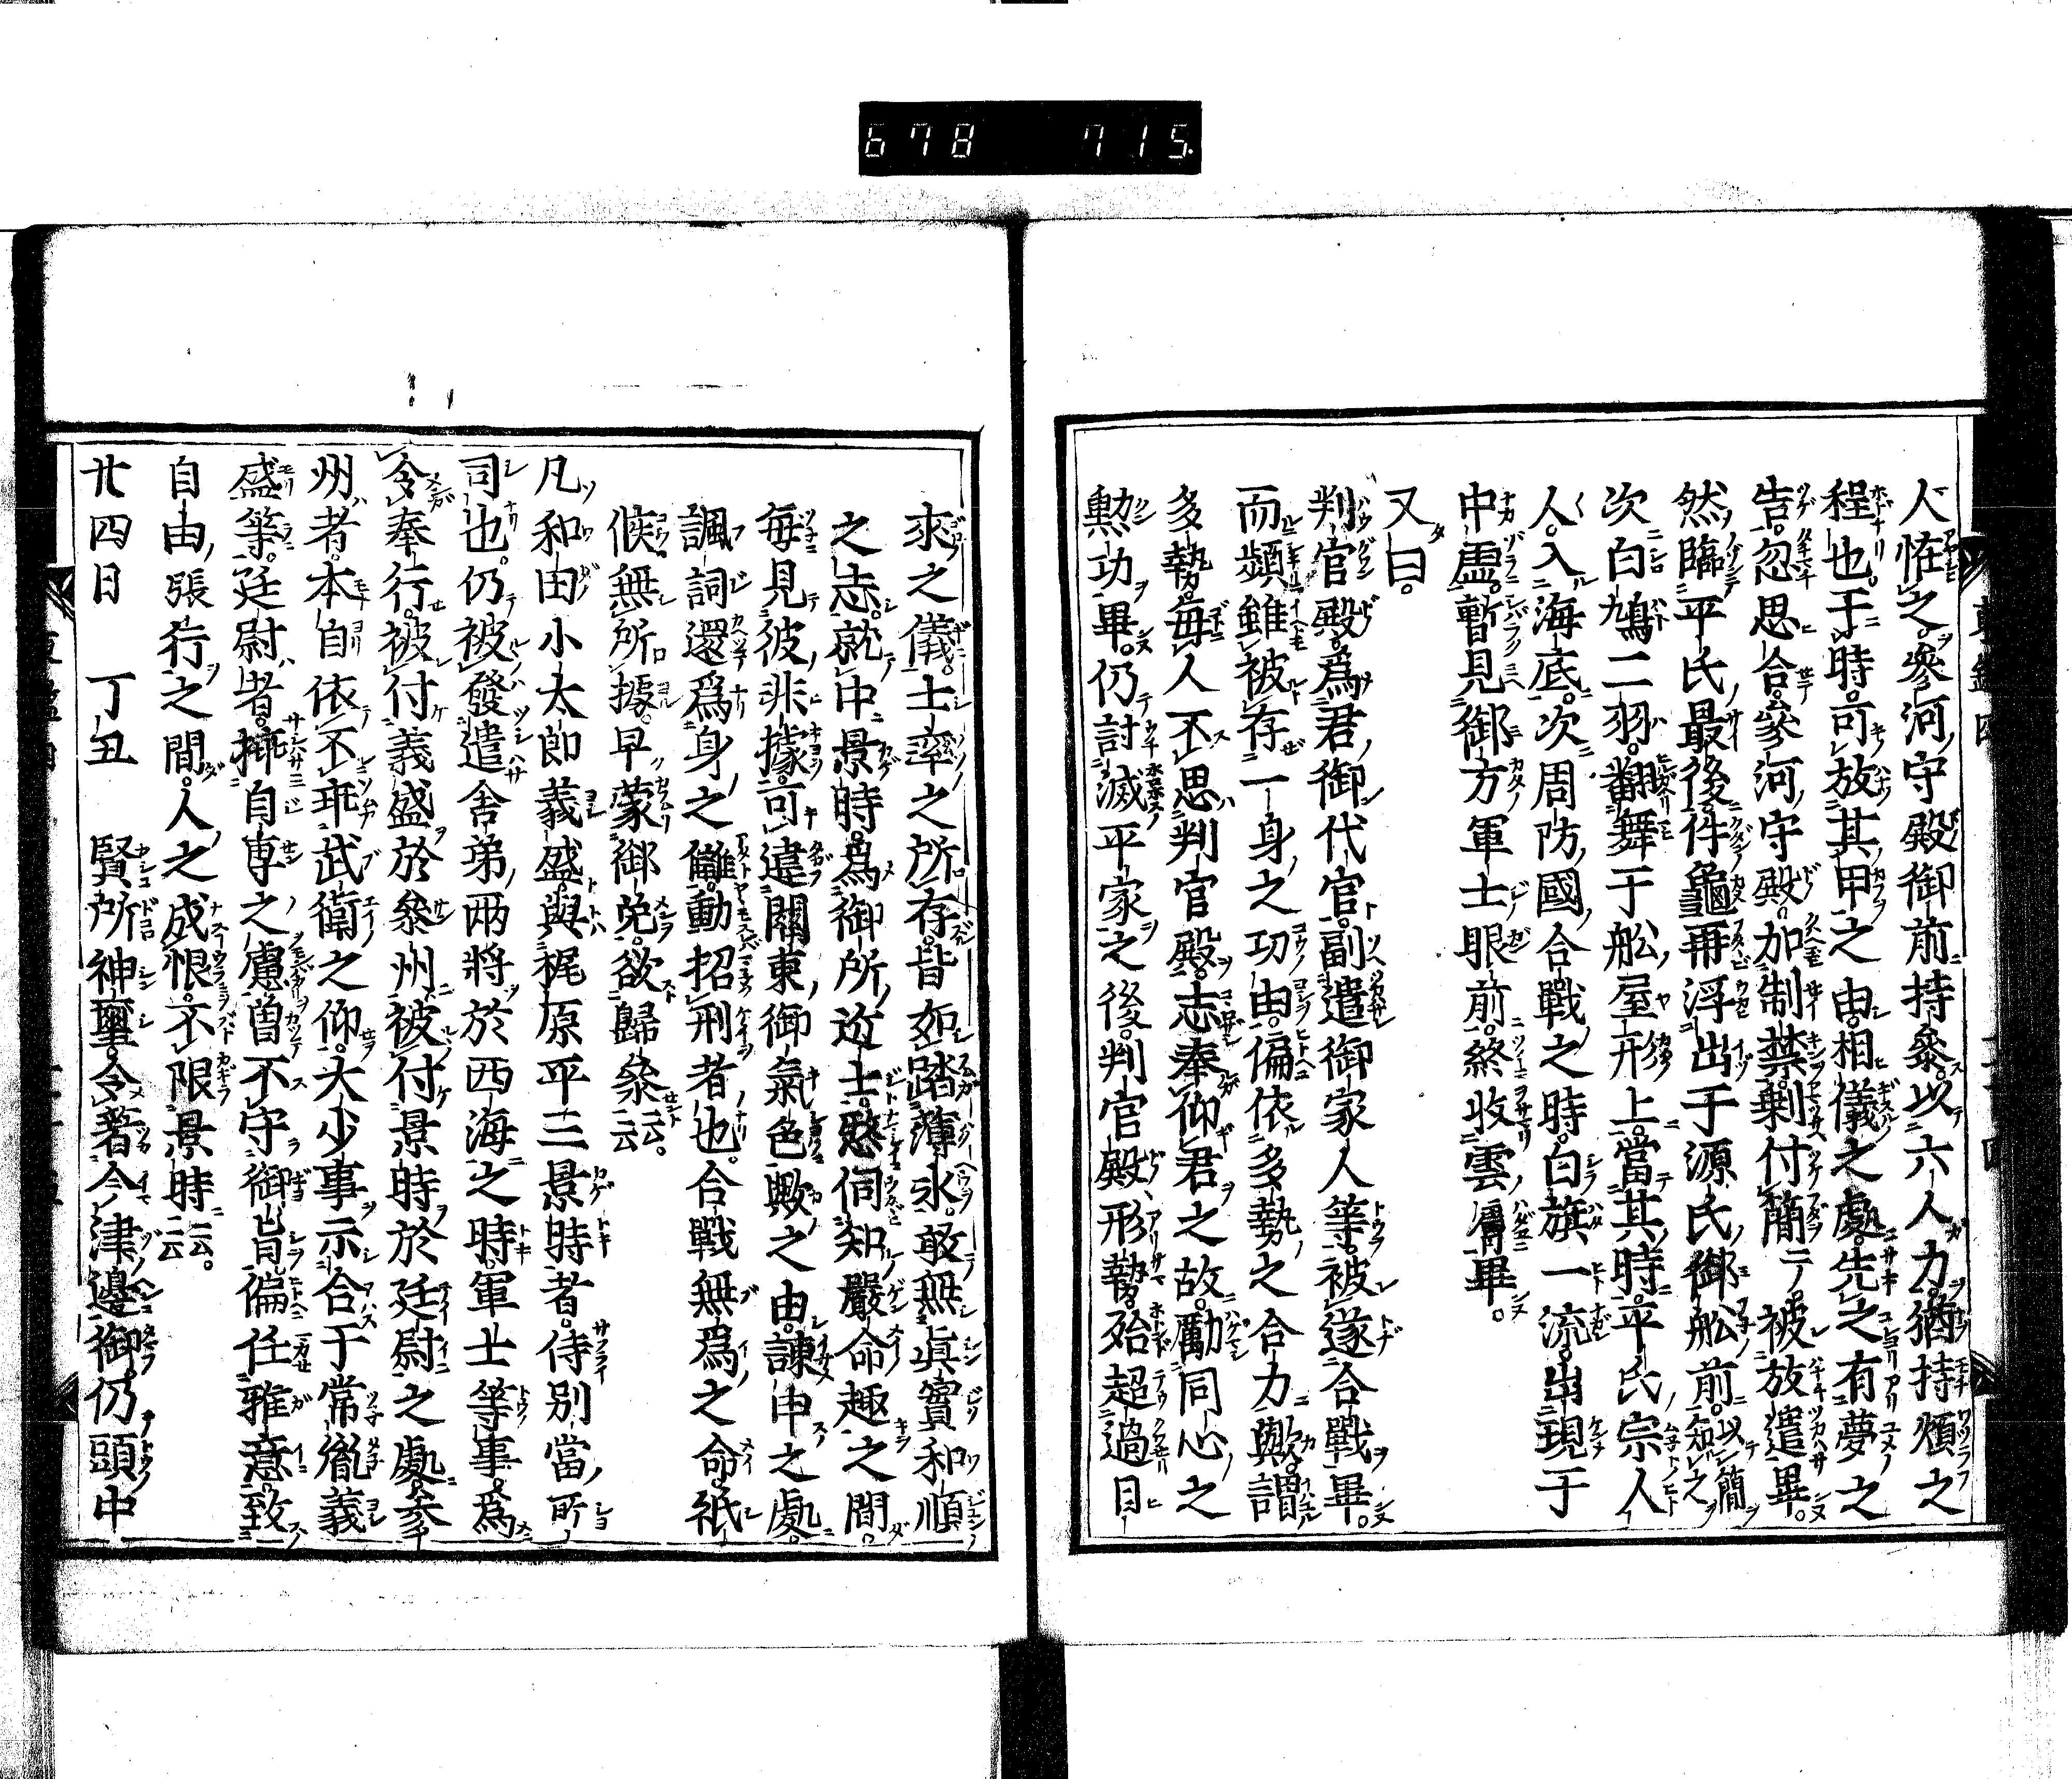 678 715
人恠之參河守殿御前持參以六人力猶持煩之
程也于時可放其甲之由相儀之處先之有夢之
告忽思合參河守殿加制禁剰付簡テ被放遣畢
然臨平氏最後件龜再浮出于源氏御舩前以簡知之
次白鳩二羽翻舞于舩屋形上當其時平氏宗人
人入海底次周防國合戰之時白旗一流出現于
中虚暫見御方軍士眼前終收雲膚畢
又曰
判官殿爲君御代官副遣御家人等被遂合戰畢
而頻雖被存一身之功由偏依多勢之合力歟謂
多勢毎人不思判官殿志奉仰君之故勵同心之
勲功畢仍討滅平家之後判官殿形勢殆超過日
來之儀士卒之所存皆如踏薄氷敢無眞實和順
之志就中景時爲御所近士憖伺知嚴命趣之間
毎見彼非據可違關東御氣色歟之由諫申之處
諷詞還爲身之讎動招刑者也合戰無爲之命祇
候無所據早蒙御免欲歸參云云
凡和田小太郎義盛與梶原平三景時者侍別當所
司也仍被發遣舎弟兩將於西海之時軍士等事爲
令奉行被付義盛於參州被付景時於廷尉之處參
州者本自依不乖武衛之仰大少事示合于常胤義
盛等廷尉者挿自専之慮曽不守御旨偏任雅意致
自由張行之間人之成恨不限景時云云
廿四日　丁丑　賢所神璽令著今津邊御仍頭中